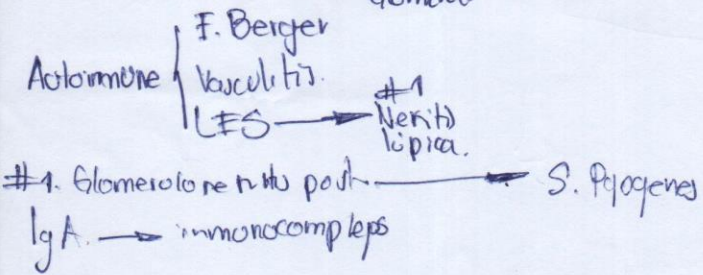 E. Berger
Autoinmune
Vasculitis.
LES → #1 Nefritis lúpica.
#1. Glomerulonefritis post → S. Pyogenes
IgA. → inmunocomplejos